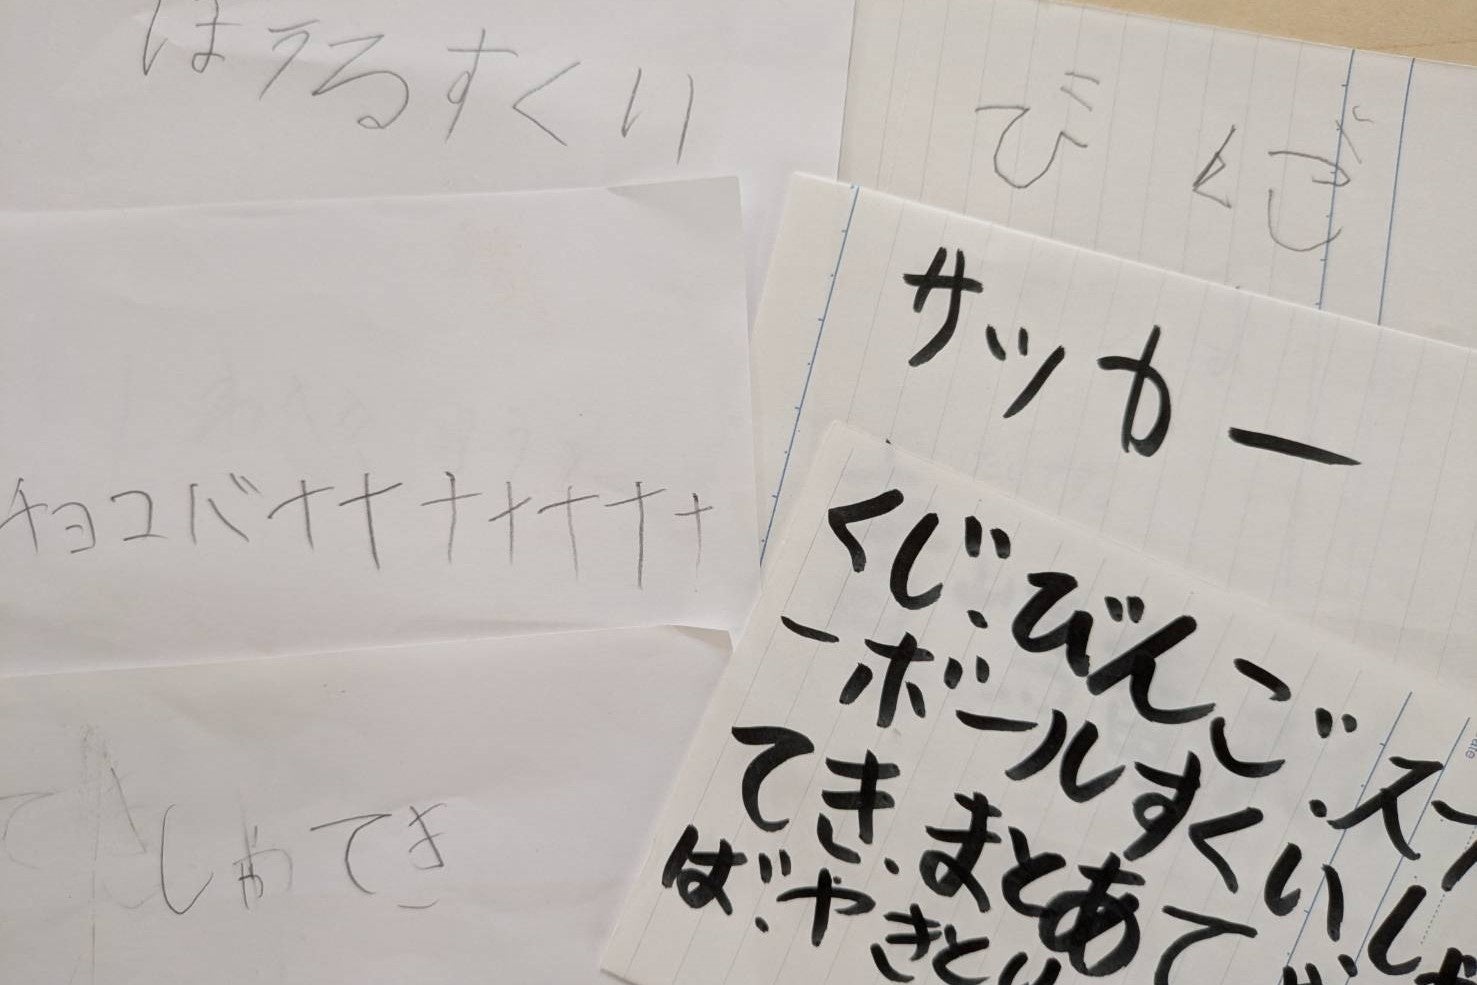 ほうるすくい
サッカー
チョコバナナナナナナナ
しゃてき
くじ、びんご、ス
ーボールすくい、しゃ
てき、まとあて
ば、やきとり